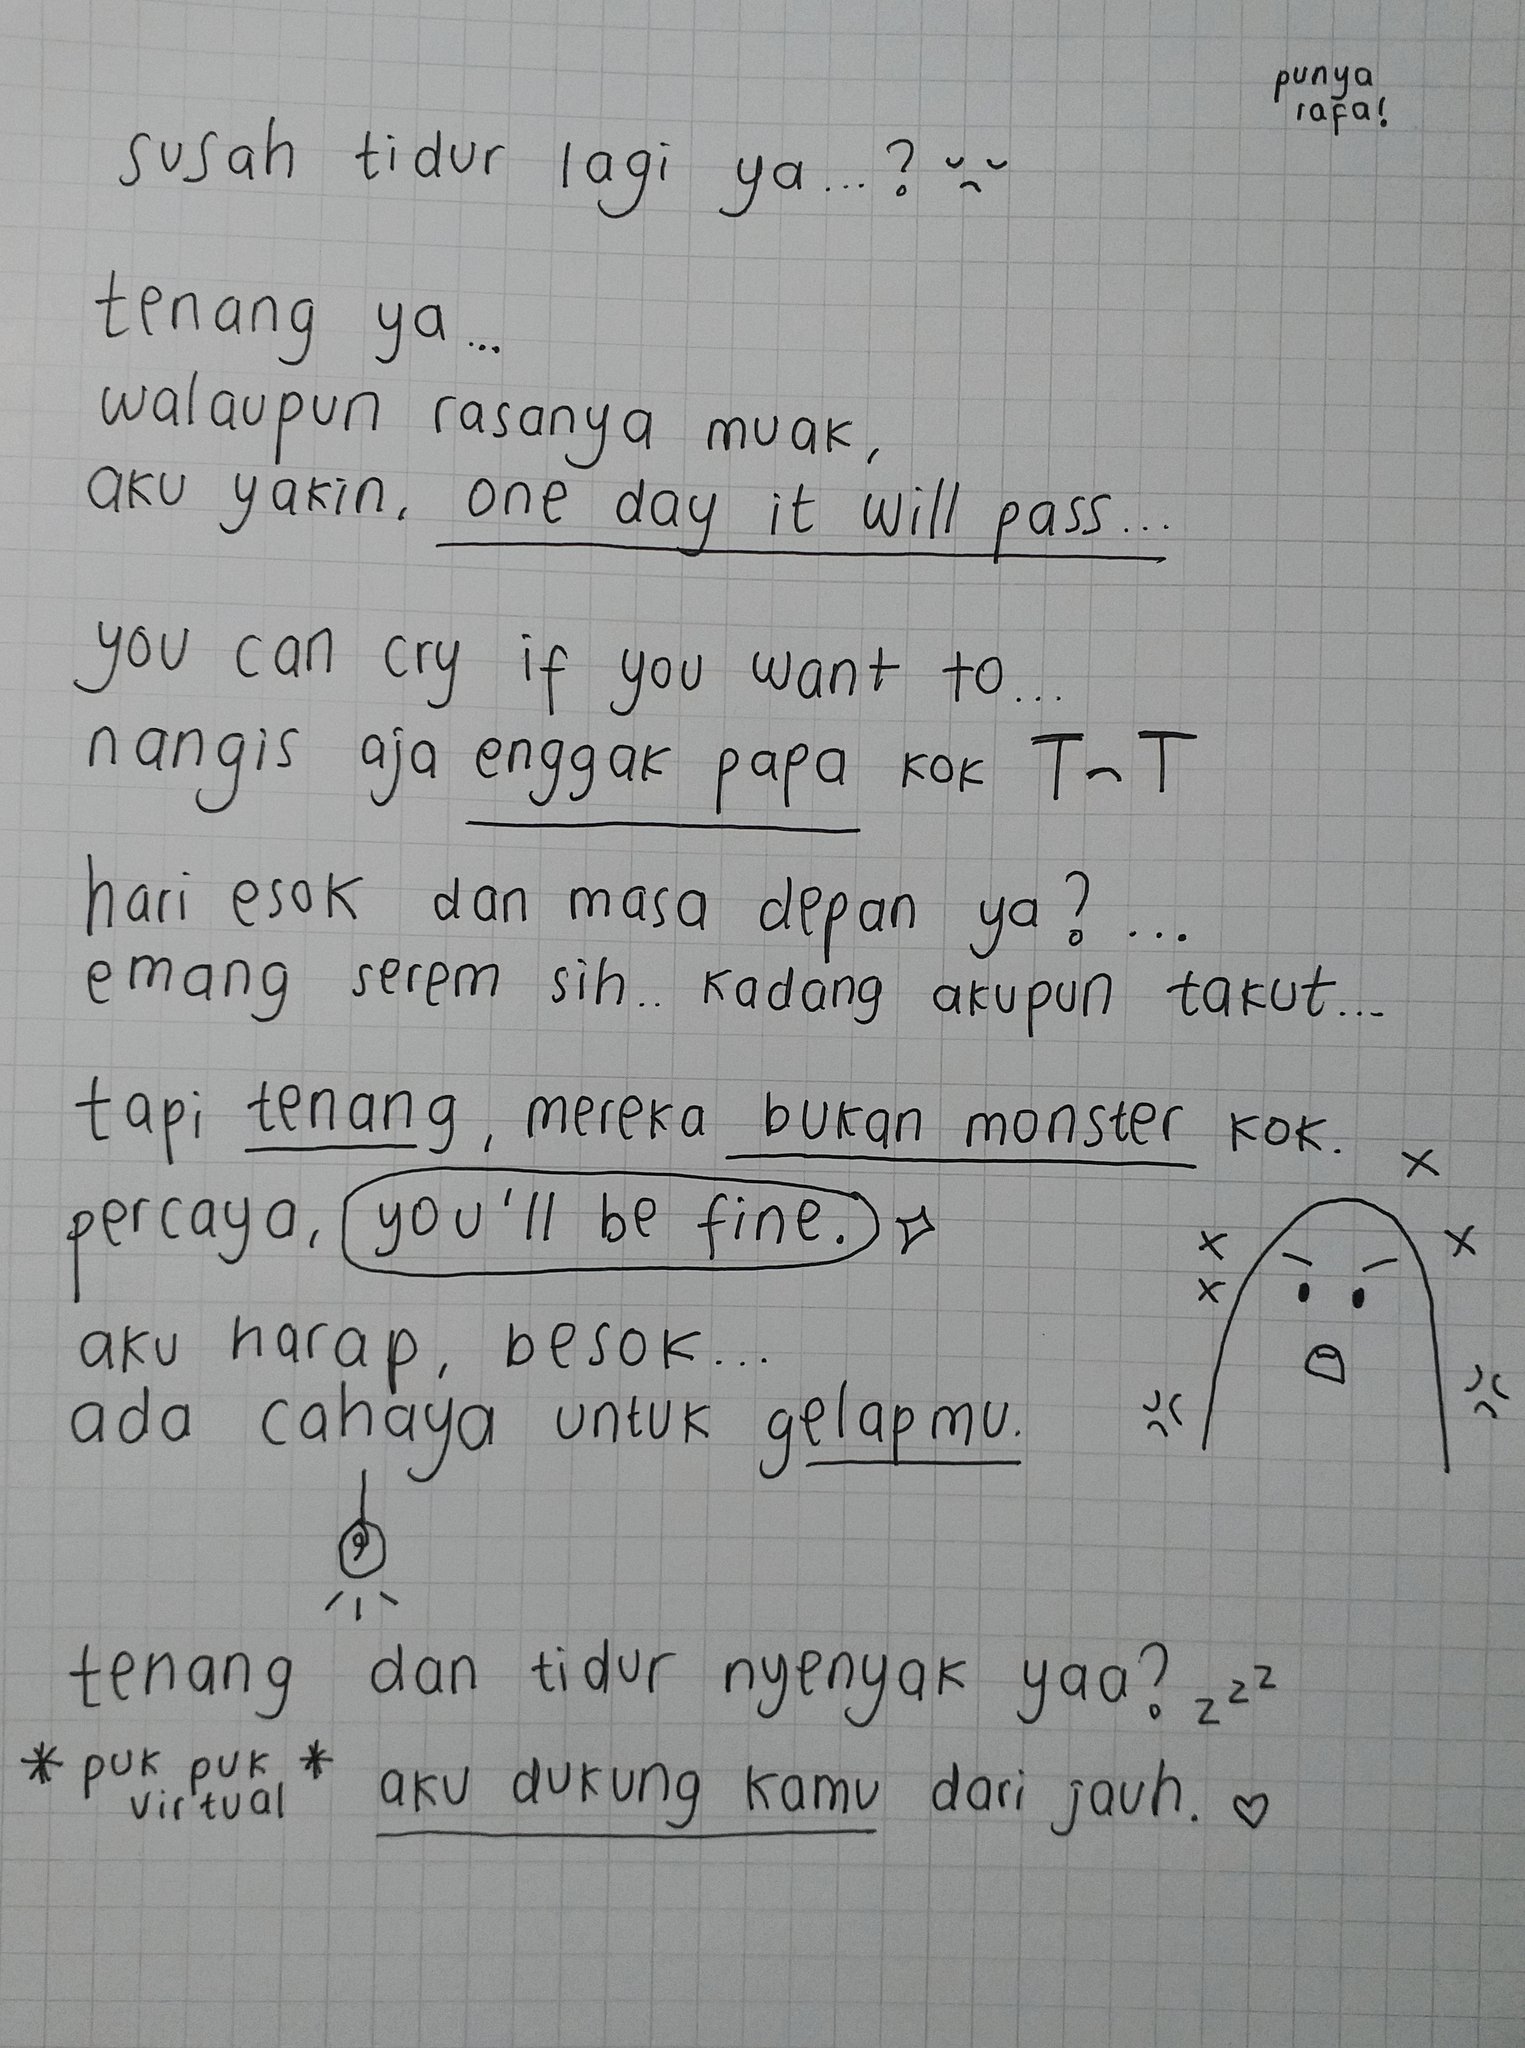 punya
rafa!
susah tidur lagi ya...?
tenang ya...
walaupun rasanya muak,
aku yakin, one day it will pass...
you can cry if you want to...
nangis aja enggak papa kok T^T
hari esok dan masa depan ya?...
emang serem sih.. kadang akupun takut...
tapi tenang, mereka bukan monster kok.
percaya, you'll be fine.
aku harap, besok...
ada cahaya untuk gelapmu.
tenang dan tidur nyenyak yaa? zzz
*puk puk virtual* aku dukung kamu dari jauh. ♡